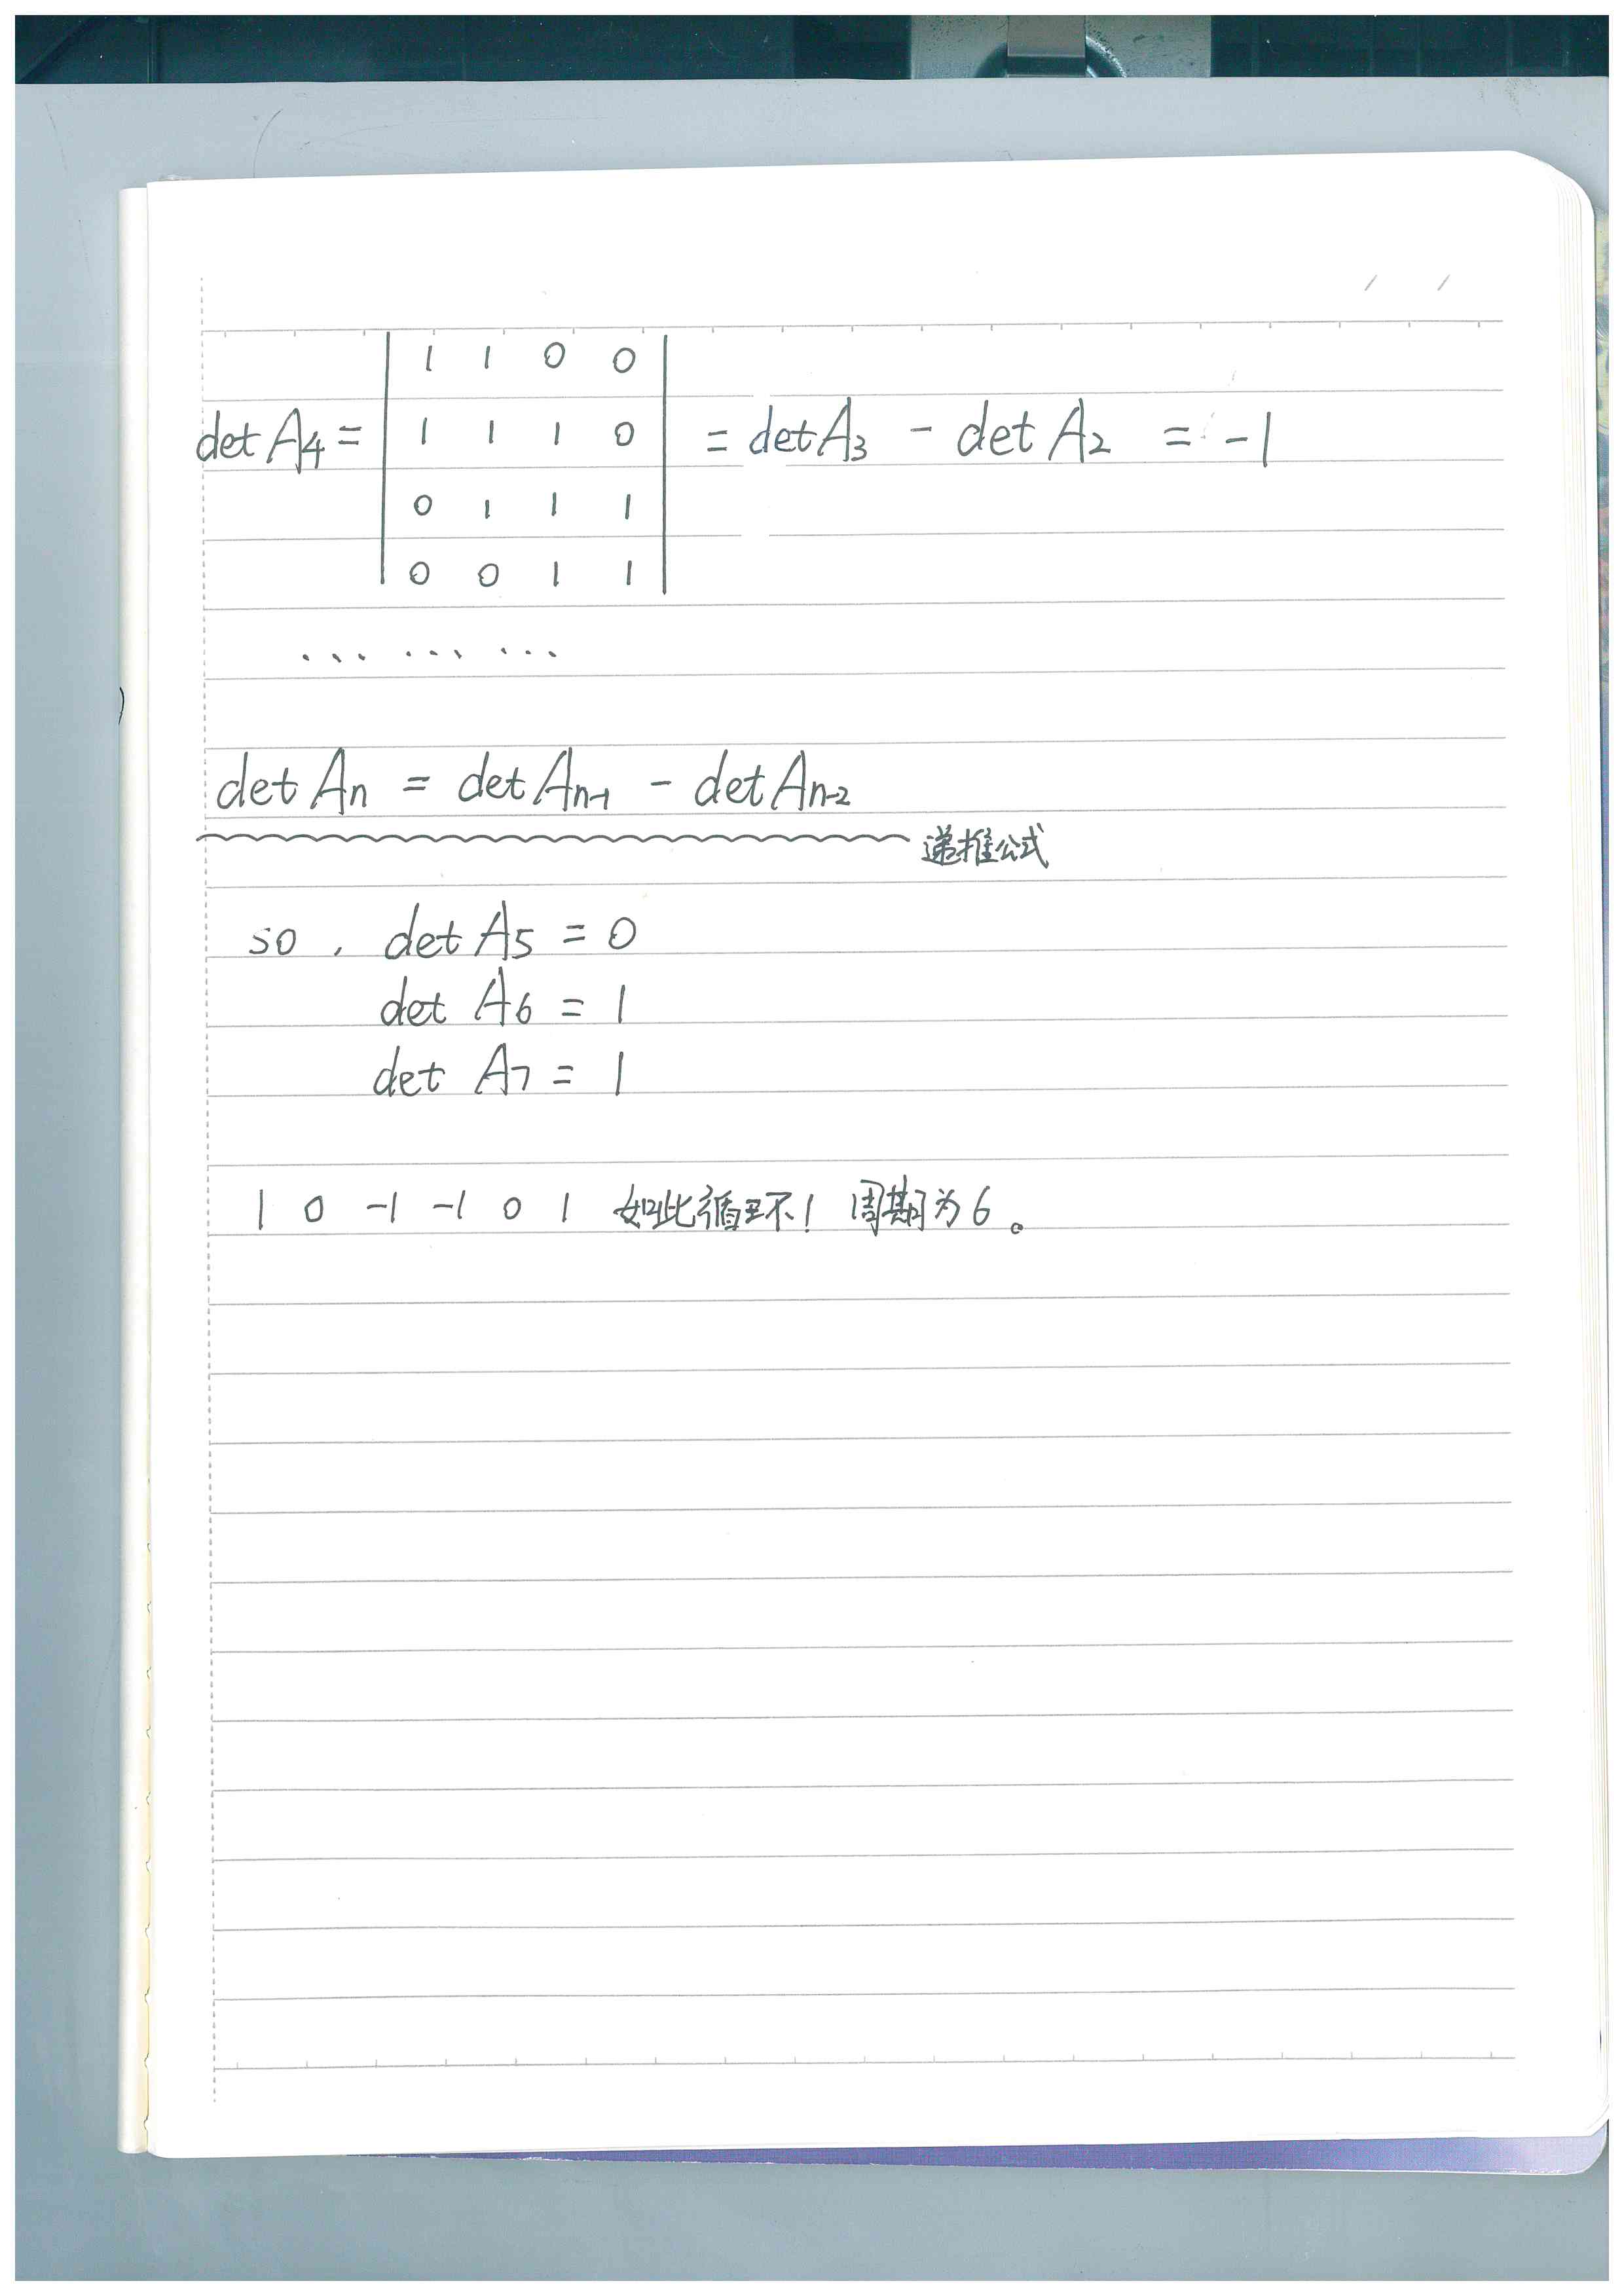 det A4 = | 1 1 0 0 |
| 1 1 1 0 | = det A3 - det A2 = -1
| 0 1 1 1 |
| 0 0 1 1 |
... ... ...
det An = det An-1 - det An-2
递推公式
so , det A5 = 0
det A6 = 1
det A7 = 1
1 0 -1 -1 0 1 如此循环! 周期为6。